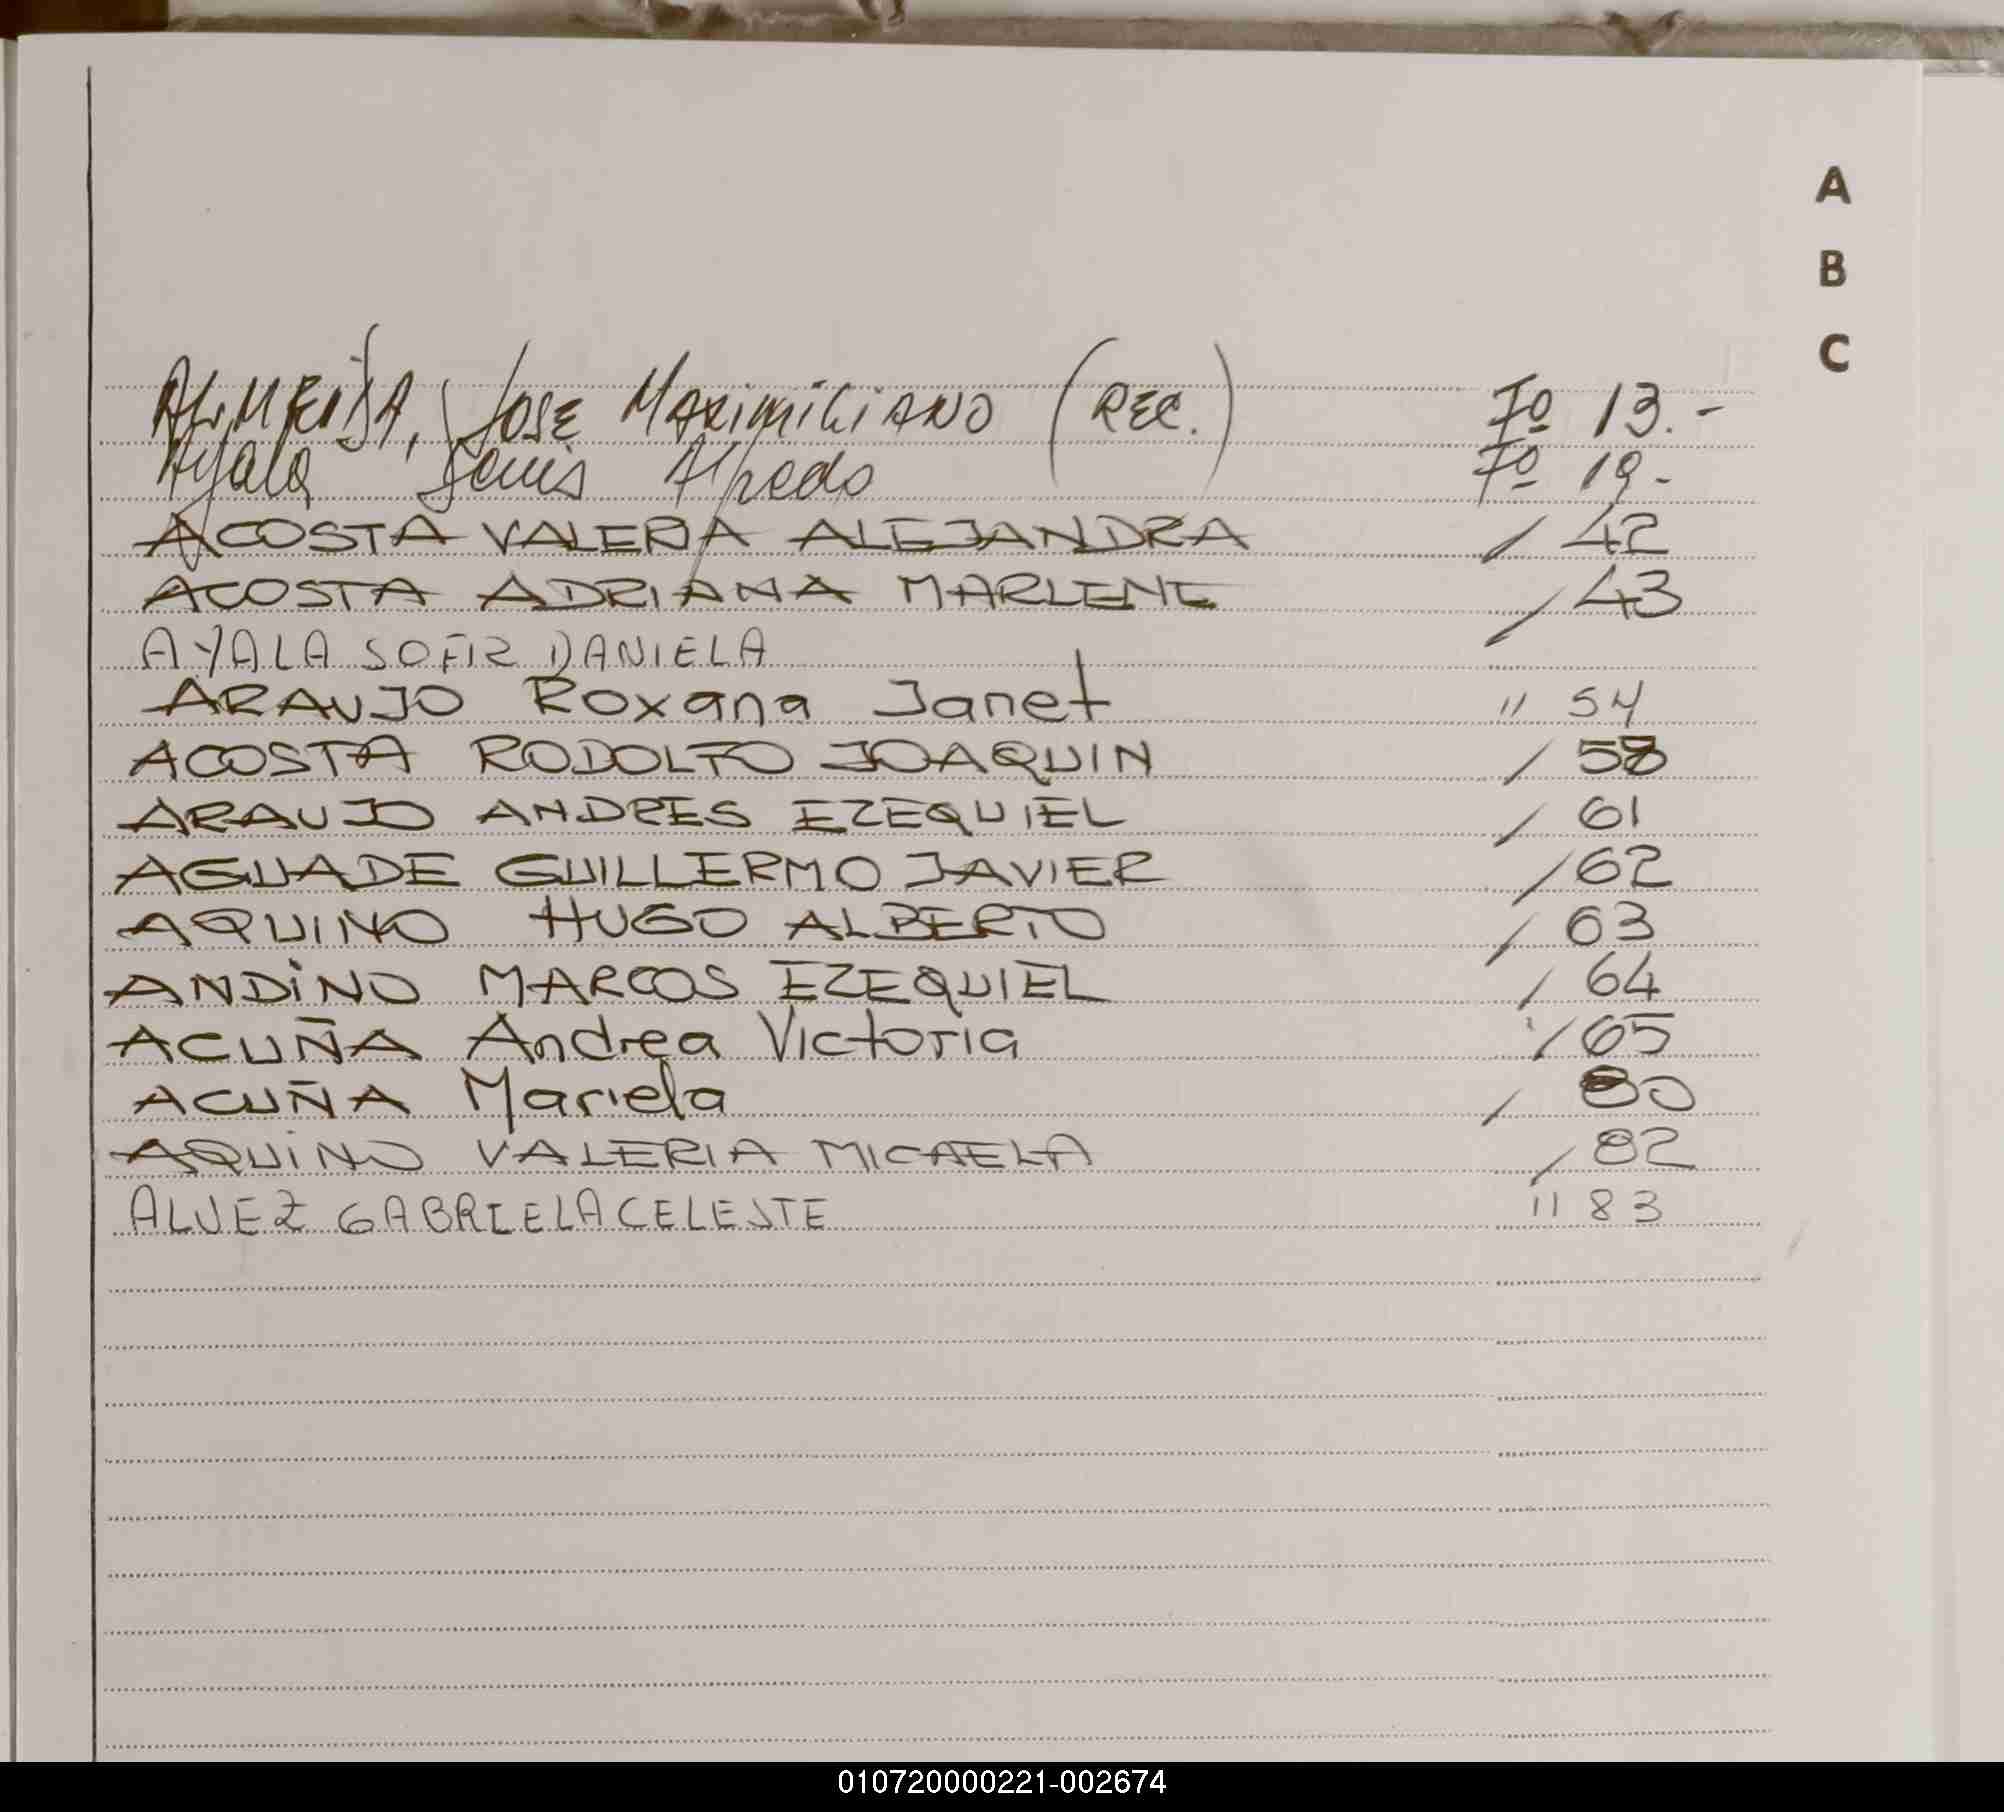 A
B
C
ALMEIDA, JOSE MAXIMILIANO (REC.) Fº 13.-
Ayala Denis Alfredo Fº 19-
ACOSTA VALERIA ALEJANDRA / 42
ACOSTA ADRIANA MARLENE / 43
AYALA SOFIA DANIELA
ARAUJO Roxana Janet " 54
ACOSTA RODOLFO JOAQUIN / 58
ARAUJO ANDRES EZEQUIEL / 61
AGUADE GUILLERMO JAVIER / 62
AQUINO HUGO ALBERTO / 63
ANDINO MARCOS EZEQUIEL / 64
ACUÑA Andrea Victoria / 65
ACUÑA Mariela / 80
AQUINO VALERIA MICAELA / 82
ALVEZ GABRIELA CELESTE " 83
010720000221-002674